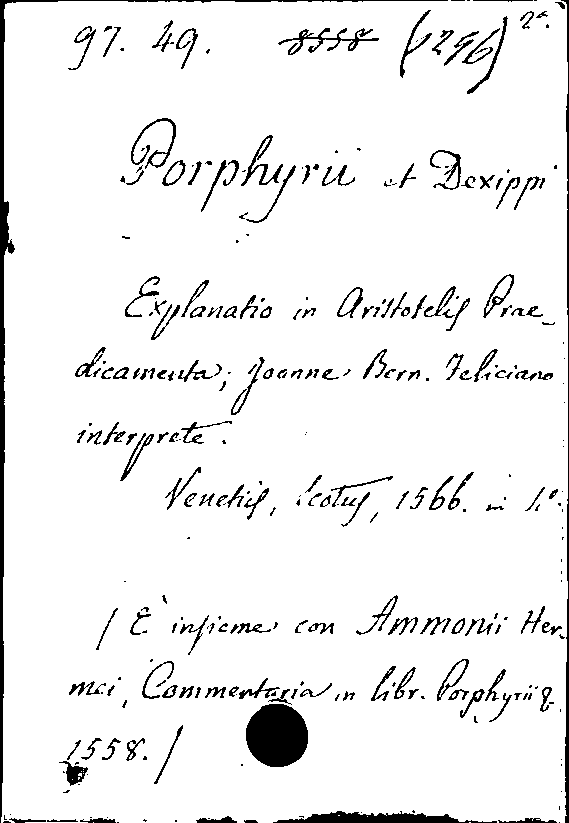 97. 49. 8558 (1296) 2a.
Porphyrii et Dexippi
Explanatio in Aristotelis Prae-
dicamenta; Joanne Bern. Feliciano
interprete.
Venetiis, Scotus, 1566. in
/ È insieme con Ammonii Her-
mei, Commentaria in libr. Porphyrii &
1558. /